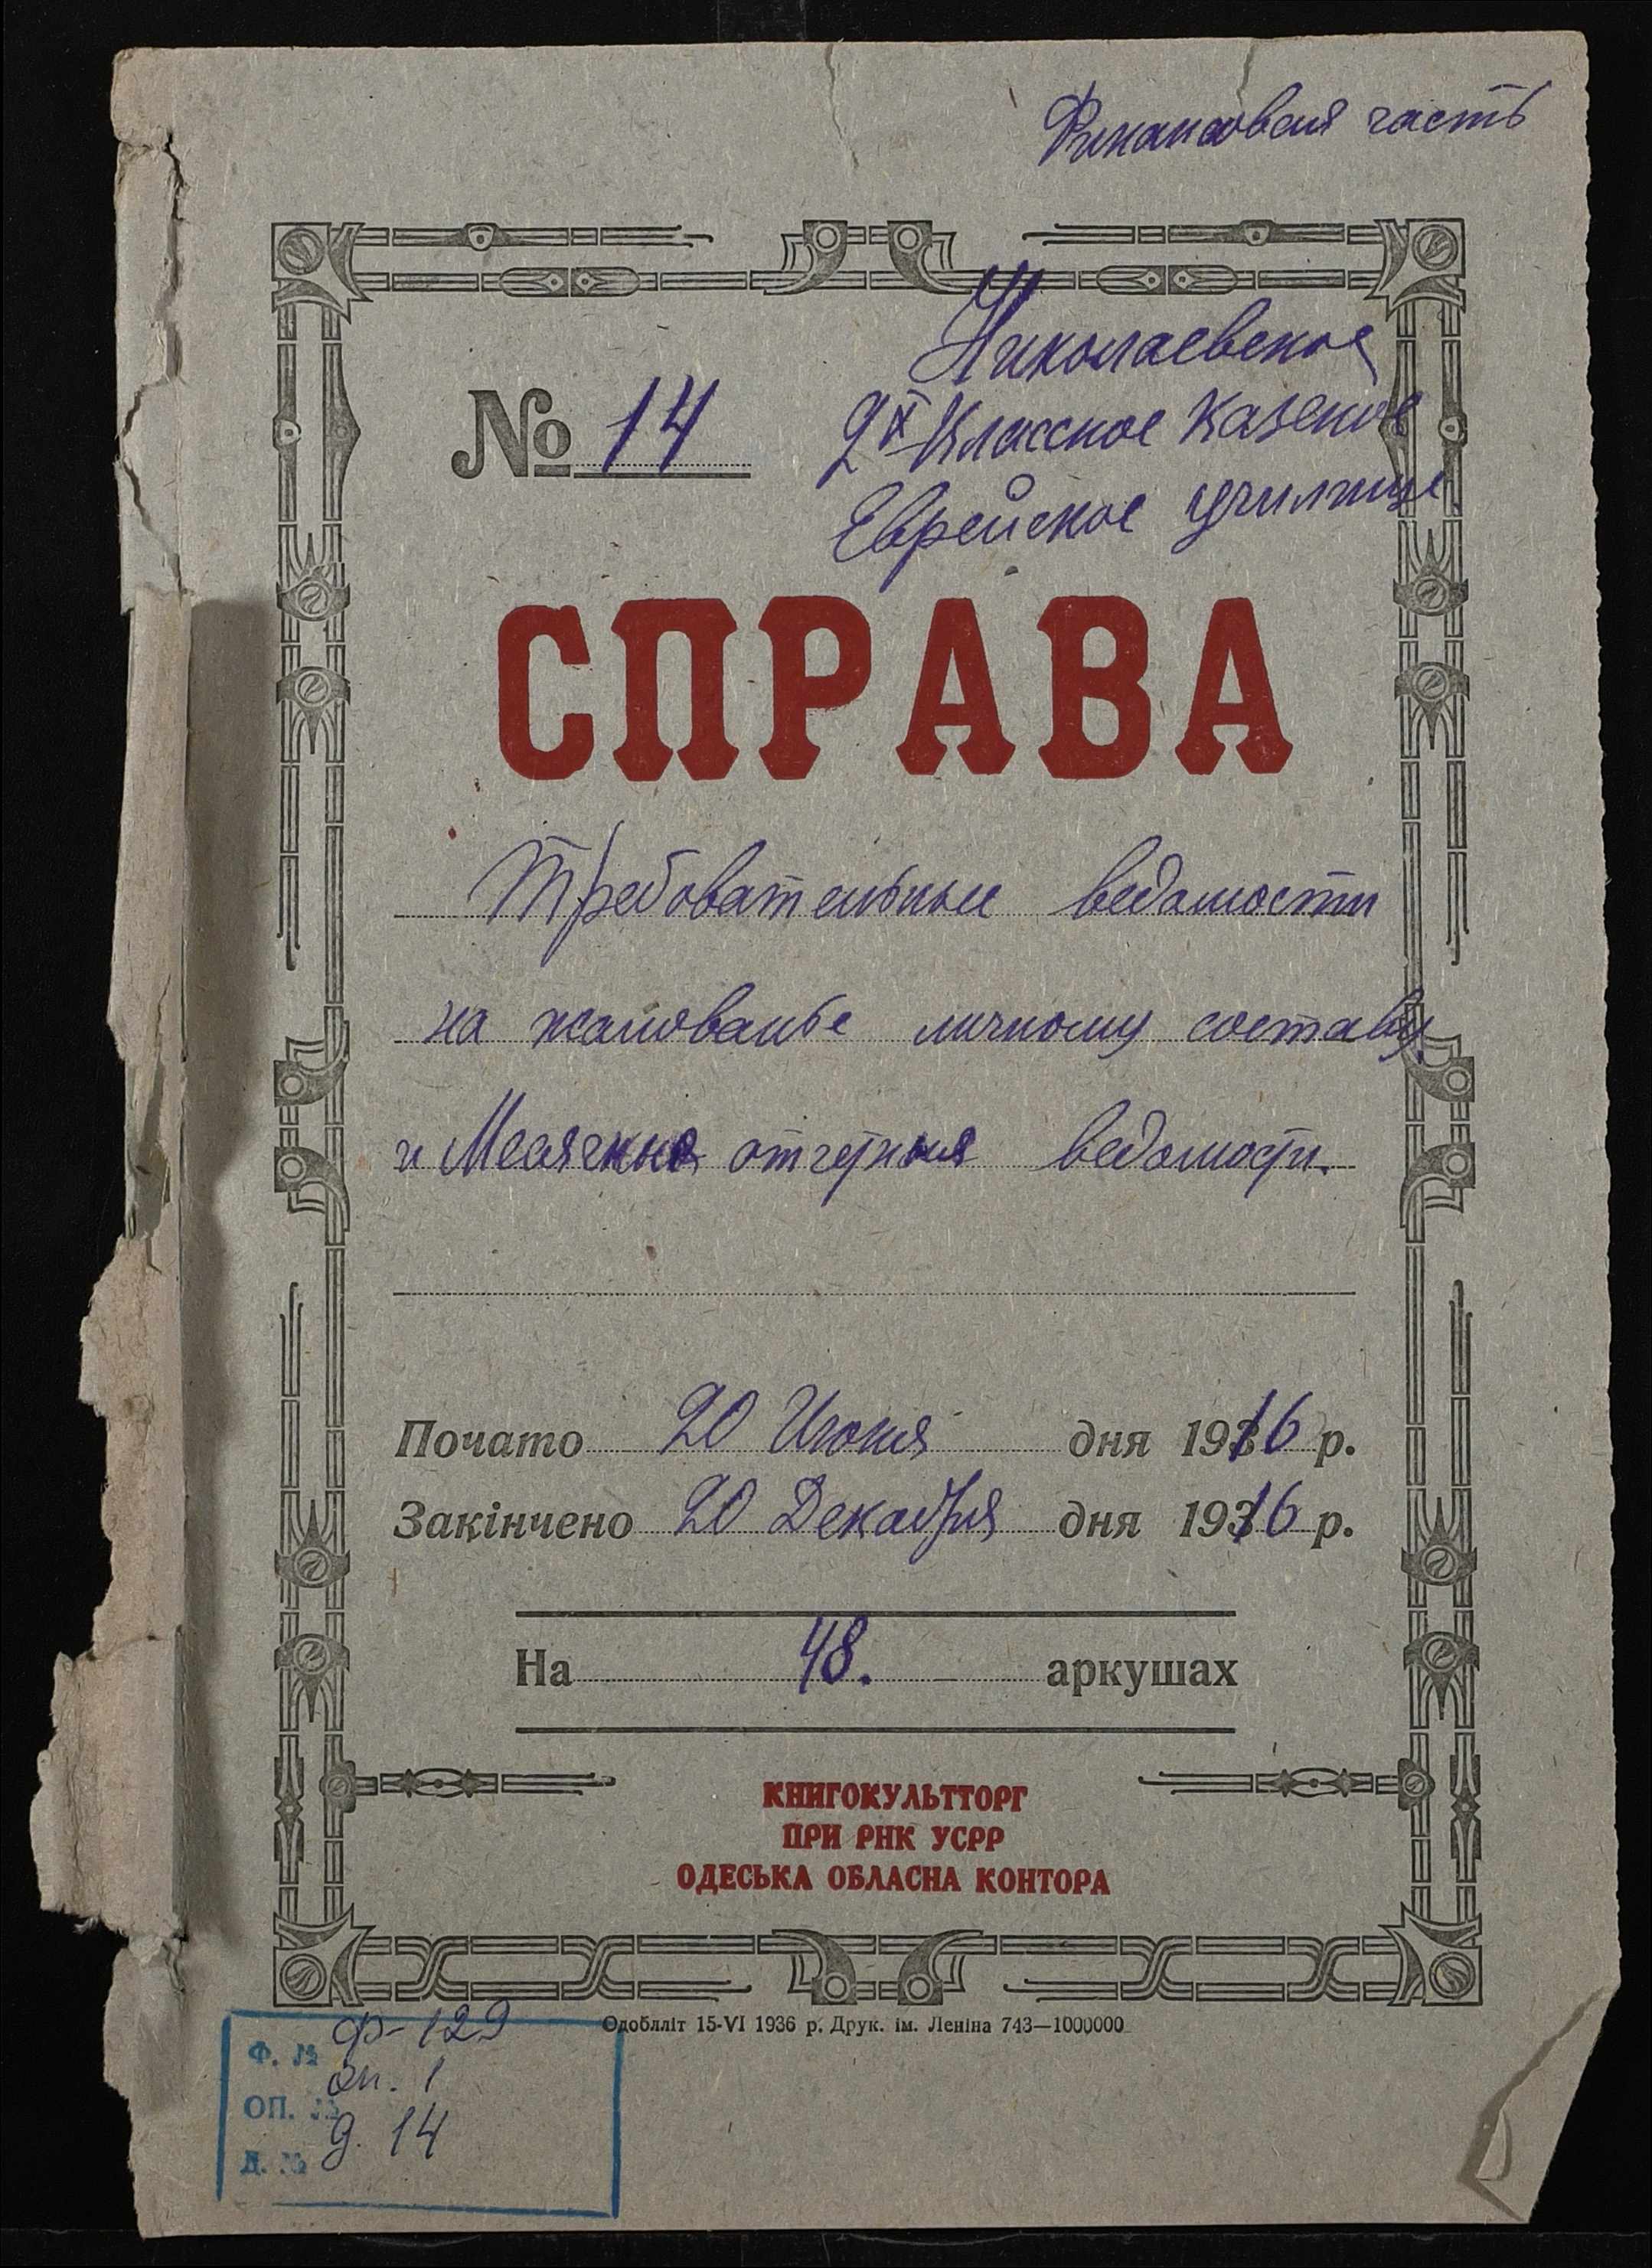 Финансовая часть
Николаевское
№ 14
2х Классное казеное
Еврейское училище
СПРАВА
Требовательные ведомости
на жалованье личному составу
и Месячные отчетныя ведомости.
Почато 20 Июня дня 1916 р.
Закінчено 20 Декабря дня 1916 р.
На 48. аркушах
КНИГОКУЛЬТТОРГ
ПРИ РНК УСРР
ОДЕСЬКА ОБЛАСНА КОНТОРА
Одоблліт 15-VI 1936 р. Друк. ім. Леніна 743—1000000
Ф. № Ф-129
ОП. № оп. 1
Д. № д. 14